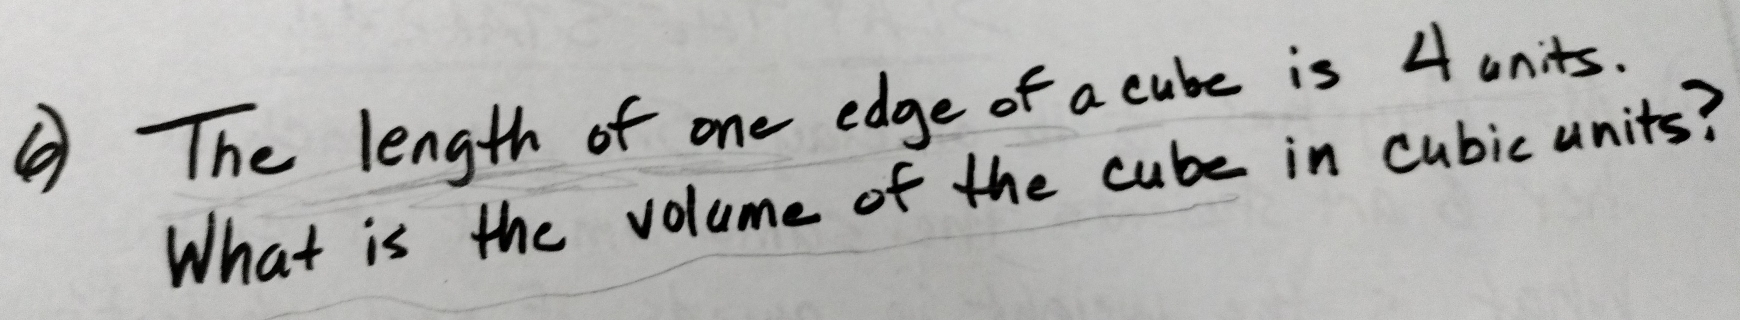 6) The length of one edge of a cube is 4 units.
What is the volume of the cube in cubic units?